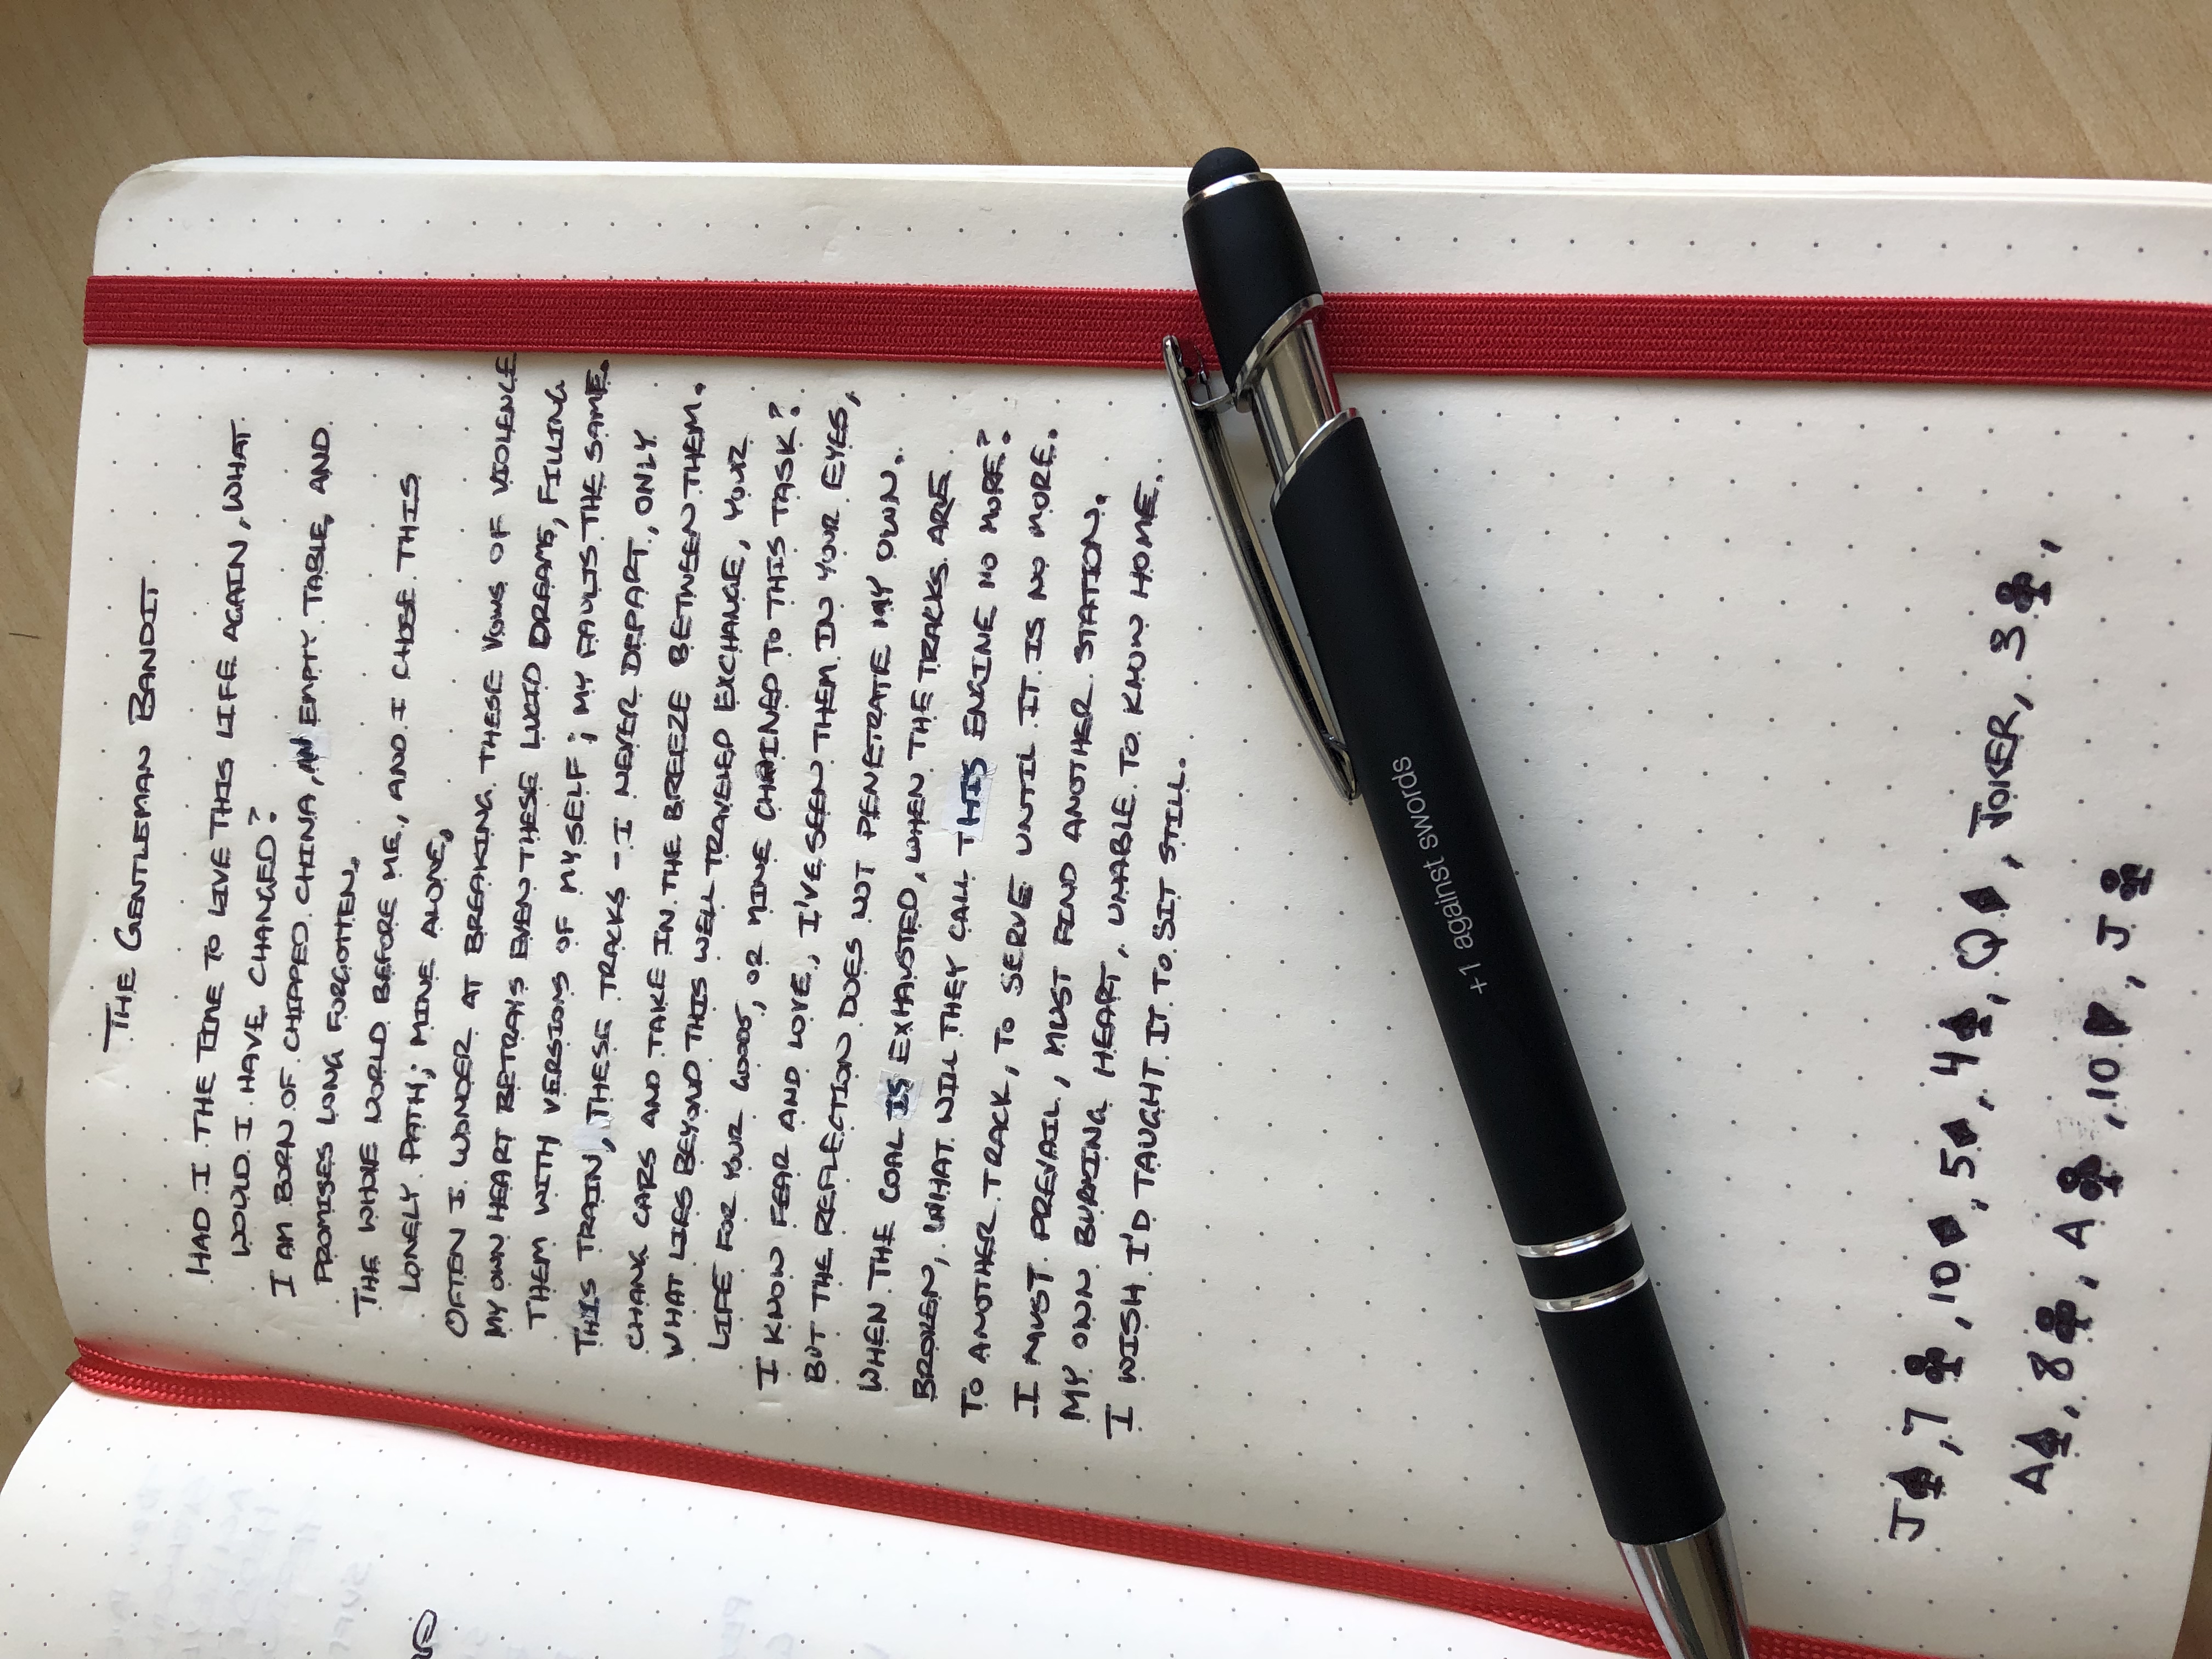 THE GENTLEMAN BANDIT
HAD I THE TIME TO LIVE THIS LIFE AGAIN, WHAT
WOULD I HAVE CHANGED?
I AM BORN OF CHIPPED CHINA, AN EMPTY TABLE, AND
PROMISES LONG FORGOTTEN.
THE WHOLE WORLD BEFORE ME, AND I CHOSE THIS
LONELY PATH; MINE ALONE.
OFTEN I WONDER AT BREAKING THESE VOWS OF VIOLENCE
MY OWN HEART BETRAYS EVEN THESE LUCID DREAMS, FILLING
THEM WITH VERSIONS OF MYSELF; MY FAULTS THE SAME.
THIS TRAIN, THESE TRACKS - I NEVER DEPART, ONLY
CHANGE CARS AND TAKE IN THE BREEZE BETWEEN THEM.
WHAT LIES BEYOND THIS WELL TRAVELED EXCHANGE, YOUR
LIFE FOR YOUR GOODS, OR MINE CHAINED TO THIS TASK?
I KNOW FEAR AND LOVE, I'VE SEEN THEM IN YOUR EYES,
BUT THE REFLECTION DOES NOT PENETRATE MY OWN.
WHEN THE COAL IS EXHAUSTED, WHEN THE TRACKS ARE
BROKEN, WHAT WILL THEY CALL THIS ENGINE NO MORE?
TO ANOTHER TRACK, TO SERVE UNTIL IT IS NO MORE.
I MUST PREVAIL, MUST FIND ANOTHER STATION.
MY OWN BURNING HEART, UNABLE TO KNOW HOME.
I WISH I'D TAUGHT IT TO SIT STILL.
+1 against swords
J♠, 7♣, 10♦, 5♦, 4♠, Q♦, JOKER, 3♣,
A♠, 8♣, A♣, 10♥, J♣